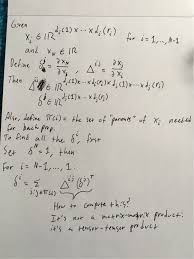 Given
x_i ∈ ℝ^{d_i(1)×···×d_i(r_i)} for i=1,...,N-1
and x_N ∈ ℝ
Define δ^i = ∂x_N/∂x_i, Δ^{ij} = ∂x_j/∂x_i
Then
Also, define π(i) = the set of "parents" of x_i needed
for backprop.
To find all the δ^i, first
Set δ^N = 1, then
For i = N-1, ..., 1.
δ^i = Σ_{j: j∈π(i)} Δ^{ij} (δ^j)^T
How to compute this?
It's not a matrix-matrix product
it's a tensor-tensor product